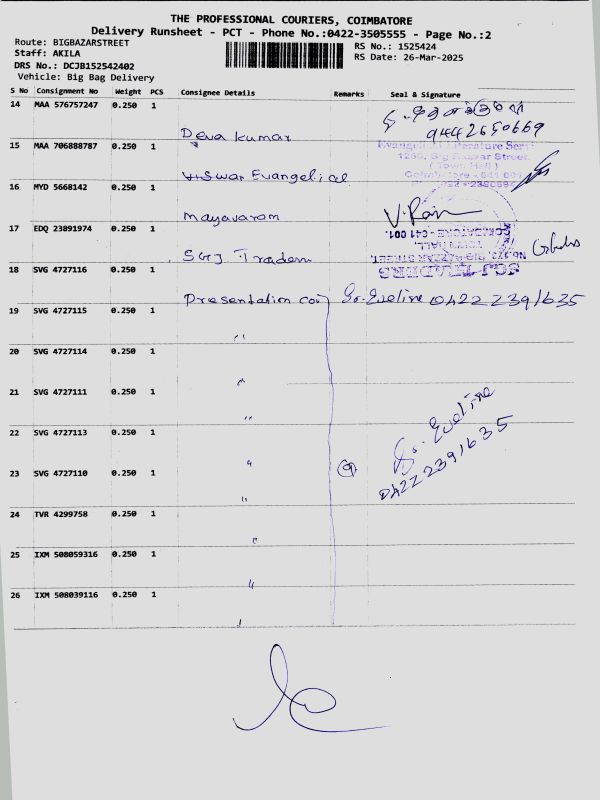 THE PROFESSIONAL COURIERS, COIMBATORE
Delivery Runsheet - PCT - Phone No.:0422-3505555 - Page No.:2
Route: BIGBAZARSTREET
Staff: AKILA
DRS No.: DCJB152542402
Vehicle: Big Bag Delivery
RS No.: 1525424
RS Date: 26-Mar-2025
S No Consignment No Weight PCS Consignee Details Remarks Seal & Signature
14 MAA 576757247 0.250 1
Deva kumar 9442650669
15 MAA 706888787 0.250 1
Evangelical Literature Serv
1260, Big Bazaar Street,
(Town Hall)
Coimbatore - 641 001
Viswar Evangelical
16 MYD 5668142 0.250 1
Mayavaram V.Ram
17 EDQ 23891974 0.250 1
SGJ Traders
SGJ TRADERS
BIG BAZAAR STREET,
TOWN HALL,
COIMBATORE - 641 001.
18 SVG 4727116 0.250 1
Presentation con Sr. Eveline 0422 2391635
19 SVG 4727115 0.250 1
"
20 SVG 4727114 0.250 1
"
21 SVG 4727111 0.250 1
"
22 SVG 4727113 0.250 1
"
Sr. Eveline
0422 2391635
23 SVG 4727110 0.250 1
9
"
24 TVR 4299758 0.250 1
"
25 IXM 508059316 0.250 1
"
26 IXM 508039116 0.250 1